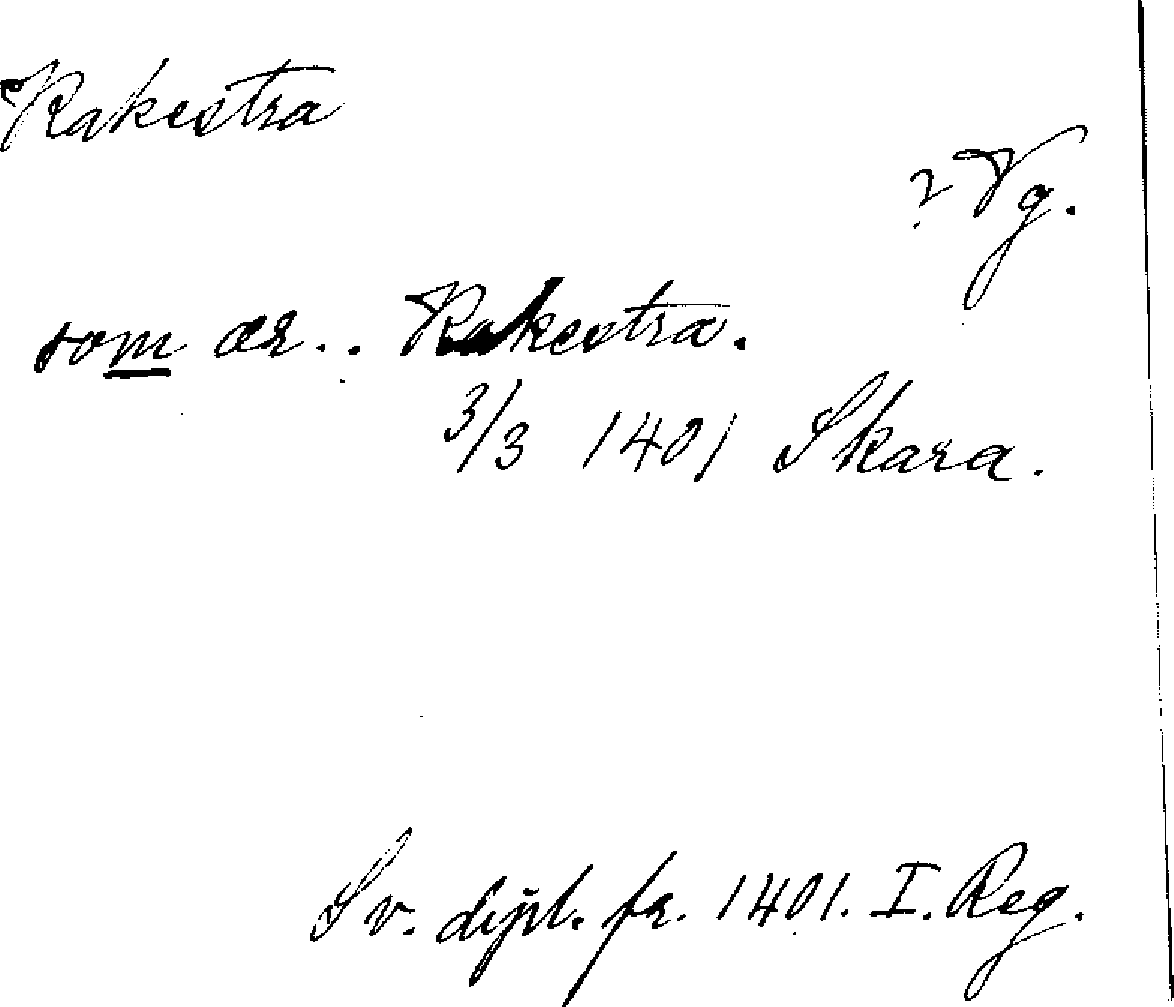 Rakestra
? Vg.
som ær.. Rakestra.
3/3 1401 Skara.
Sv. dipl. fr. 1401. I. Reg.